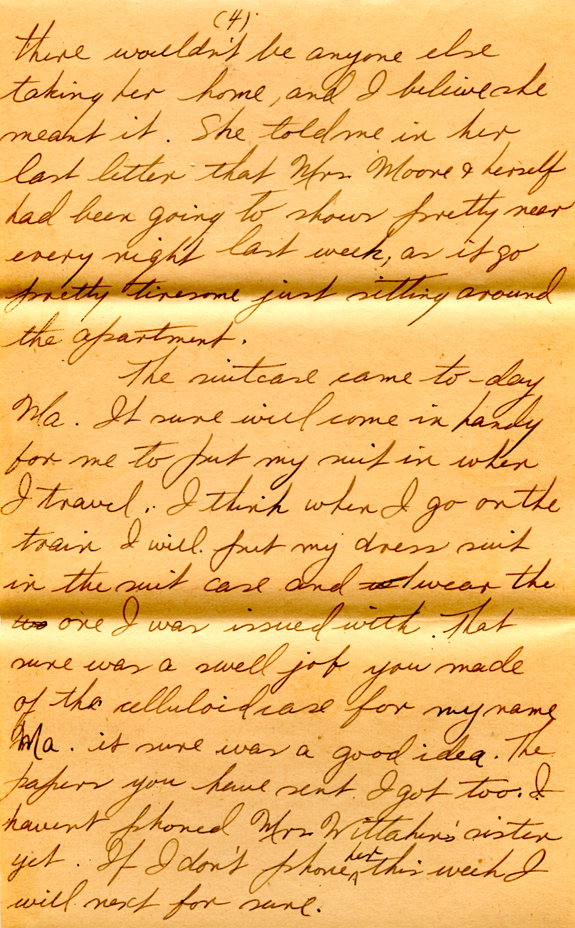 (4)
there wouldn't be anyone else
taking her home, and I believe she
meant it. She told me in her
last letter that Mrs. Moore & herself
had been going to shows pretty near
every night last week, as it go
pretty tiresome just sitting around
the apartment.
The suitcase came to-day
Ma. It sure will come in handy
for me to put my suit in when
I travel. I think when I go on the
train I will put my dress suit
in the suit case and wear the
one I was issued with. That
sure was a swell job you made
of the celluloid case for my name
Ma. it sure was a good idea. The
papers you have sent I got too. I
havent phoned Mrs. Wittaker's sister
yet. If I don't phone her this week I
will next for sure.